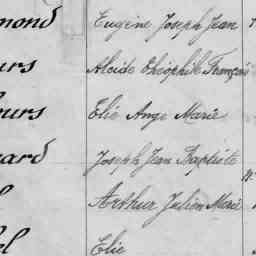 mond Eugène Joseph Jean
urs Alcide Théophile François
ours Elie Ange Marie
ard Joseph Jean Baptiste
Arthur Julien Marie
el Elie